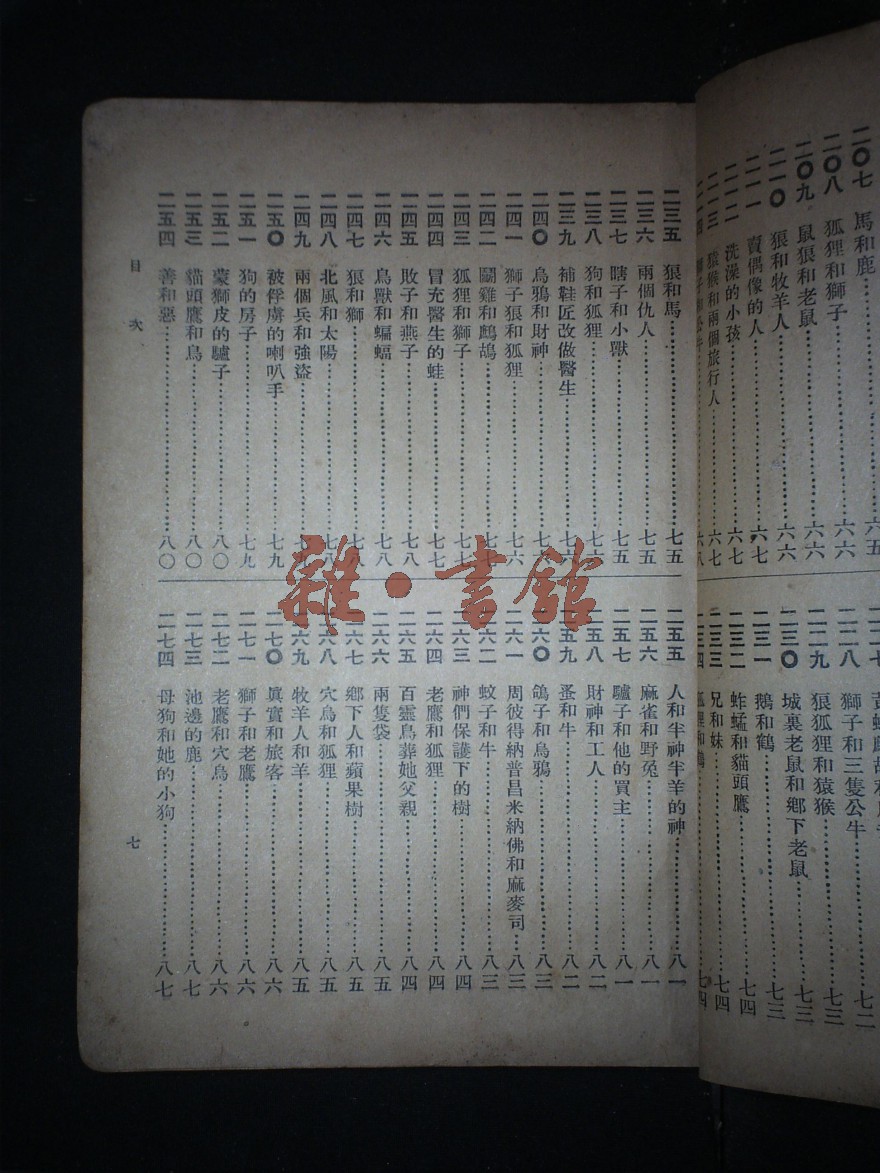 二〇七 馬和鹿 六五
二〇八 狐狸和獅子 六六
二〇九 鼠狼和老鼠 六六
二一〇 狼和牧羊人 六六
二一一 賣偶像的人 六七
二一二 洗澡的小孩 六七
二一三 猿猴和兩個旅行人 六七
二二八 獅子和三隻公牛 七二
二二九 狼狐狸和猿猴 七三
二三〇 城裏老鼠和鄉下老鼠 七三
二三一 鵝和鶴 七三
二三二 蚱蜢和貓頭鷹 七四
二三三 兄和妹 七四
二三四 狐狸和鶴 七四
二三五 狼和馬 七五
二三六 兩個仇人 七五
二三七 瞎子和小獸 七五
二三八 狗和狐狸 七六
二三九 補鞋匠改做醫生 七六
二四〇 烏鴉和財神 七六
二四一 獅子狼和狐狸 七六
二四二 鬭雞和鷓鴣 七七
二四三 狐狸和獅子 七七
二四四 冒充醫生的蛙 七七
二四五 敗子和燕子 七八
二四六 鳥獸和蝙蝠 七八
二四七 狼和獅 七八
二四八 北風和太陽 七八
二四九 兩個兵和強盜 七九
二五〇 被俘虜的喇叭手 七九
二五一 狗的房子 七九
二五二 蒙獅皮的驢子 八〇
二五三 貓頭鷹和鳥 八〇
二五四 善和惡 八〇
二五五 人和半神半羊的神 八一
二五六 麻雀和野兔 八一
二五七 驢子和他的買主 八一
二五八 財神和工人 八二
二五九 蚤和牛 八二
二六〇 鴿子和烏鴉 八三
二六一 周彼得納普昌米納佛和麻麥司 八三
二六二 蚊子和牛 八三
二六三 神們保護下的樹 八四
二六四 老鷹和狐狸 八四
二六五 百靈鳥葬她父親 八四
二六六 兩隻袋 八五
二六七 鄉下人和蘋果樹 八五
二六八 穴鳥和狐狸 八五
二六九 牧羊人和羊 八五
二七〇 眞實和旅客 八六
二七一 獅子和老鷹 八六
二七二 老鷹和穴鳥 八六
二七三 池邊的鹿 八七
二七四 母狗和她的小狗 八七
目次
七
雜·書館